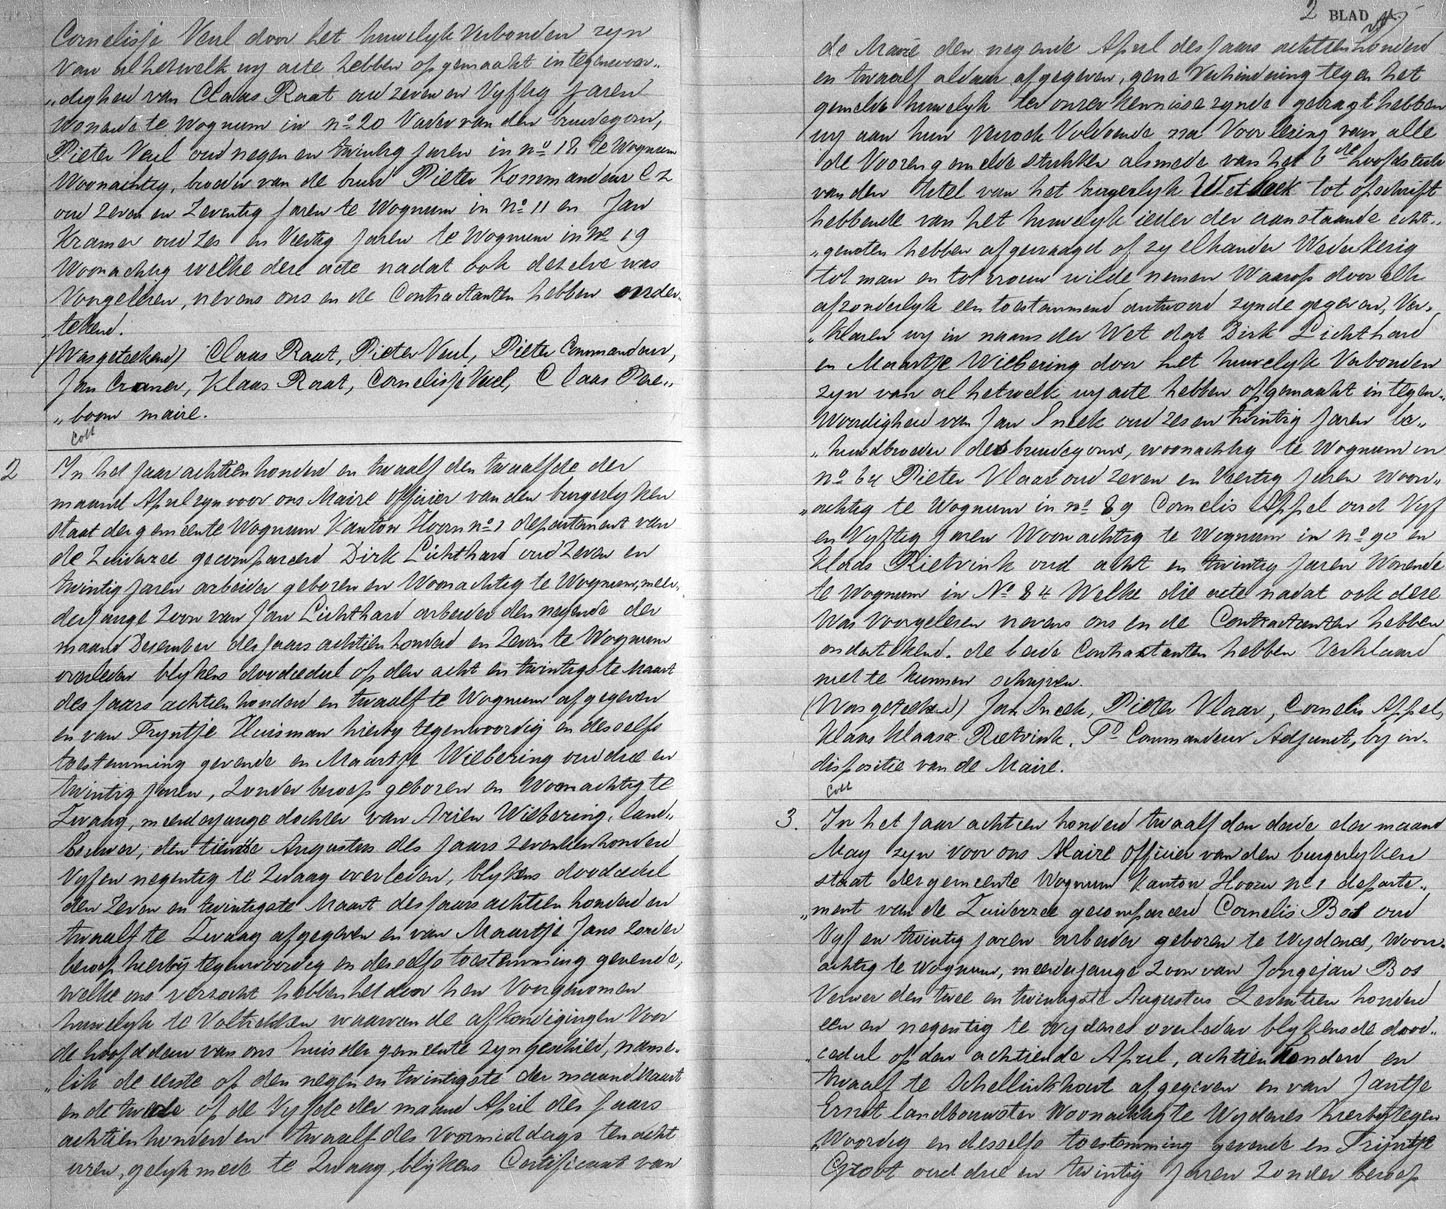 Cornelisje Veul door het huwelyk Verbonden zyn
van al hetwelk wy acte hebben opgemaakt in tegenwoor„
„digheid van Claas Raat oud zeven en Vyftig Jaren
wonende te Wognum in no 20 Vader van den bruidegom,
Pieter Veul oud negen en twintig Jaren in no 18 te Wognum
Woonachtig, broeder van de bruid Pieter Kommandeur Cz
oud zeven en Zeventig Jaren te Wognum in No 11 en Jan
Kramer oud zes en Veertig Jaren te Wognum in No 19
Woonachtig welke dese acte nadat ook deselve was
Voorgelesen, nevens ons en de Contractanten hebben onder„
„tekend.
(Was getekend) Claas Raat, Pieter Veul, Pieter Commandeur,
Jan Cramer, Klaas Raat, Cornelisje Veul, Claas Pere„
„boom maire.
Coll
2 In het Jaar achtien honderd en twaalf den twaalfde der
maand April zyn voor ons Maire Officier van den burgerlyken
staat der gemeente Wognum Kanton Hoorn no 1 departement van
de Zuiderzee gecompareerd Dirk Lichthard oud Zeven en
twintig Jaren arbeider geboren en Woonachtig te Wognum, meer„
derjange Zoon van Jan Lichthard arbeider den negende der
maand December des Jaars achtien honderd en Zeven te Wognum
overleden blykens doodcedul op den acht en twintigste Maart
des Jaars achtien honderd en twaalf te Wognum afgegeven
en van Tryntje Huisman hierby tegenwoordig en desselfs
toestemming gevende en Maartje Wiebering oud drie en
twintig Jaren, Zonder beroep geboren en Woonachtig te
Zwaag, meerderjange dochter van Arien Wiebering, land„
bouwer, den tiende Augustus des Jaars zeventienhonderd
Vyf en negentig te Zwaag overleden, blykens doodcedul
den Zeven en twintigste Maart des Jaars achtien honderd en
twaalf te Zwaag afgegeven en van Maartje Jans Zonder
beroep hierby tegenwoordig en desselfs toestemming gevende,
welke ons verzocht hebben het door hen Voorgenomen
huwelyk te Voltrekken waarvan de afkondigingen Voor
de hoofddeur van ons huis der gemeente zyn geschied, name„
„lik de eerste op den negen en twintigste der maand Maart
en de twede op de Vyfde der maand April des Jaars
achtien honderd en twaalf des Voormiddags ten acht
uren, gelyk mede te Zwaag blykens Certificaat van
2 BLAD
de Marie den negende April des Jaars achtien honderd
en twaalf aldaar afgegeven, gene Verhindering tegen het
gemelde huwelyk ter onser kennisse zynde gebragt hebben
wy aan hun Versoek Voldoende na Voorlezing van alle
de Vooren gemelde stukken alsmede van het 6de hoofdstuk
van den titel van het burgerlyk Wetboek tot opschrift
hebbende van het huwelyk ieder der aanstaande echt„
„genoten hebben afgevraagd of zy elkander Wederkerig
tot man en tot vrouw wilde nemen Waarop door elk
afzonderlyk een toestemmend antwoord zynde gegeven, Ver„
„klaren wy in naam der Wet dat Dirk Lichthard
en Maartje Wiebering door het huwelyk Verbonden
zyn van al hetwelk wy acte hebben opgemaakt in tegen„
Woordigheid van Jan Sneek oud zes en twintig Jaren be„
„huwdbroeder des bruidegoms, woonachtig te Wognum in
no 64 Pieter Vlaar oud zeven en Veertig Jaren woon„
„achtig te Wognum in no 89 Cornelis Appel oud Vyf
en Vyftig Jaren Woonachtig te Wognum in no 90 en
Klaas Rietvink oud acht en twintig Jaren Wonende
te Wognum in No 84 Welke die acte nadat ook dese
Was Voorgelesen nevens ons en de Contractanten hebben
ondertekend. de beide Contractanten hebben Verklaard
niet te kunnen schryven.
(Was getekend) Jan Sneek, Pieter Vlaar, Cornelis Appel,
Klaas Klaasz Rietvink, Pr Commandeur Adjunct, by in„
dispositie van de Maire.
Coll
3. In het Jaar achtien honderd twaalf den derde der maand
May zyn voor ons Maire Officier van den burgerlyken
staat der gemeente Wognum Kanton Hoorn no 1 departe„
„ment van de Zuiderzee gecompareerd Cornelis Bos oud
Vyf en twintig Jaren arbeider geboren te Wydenes, Woon„
achtig te Wognum, meerderjange Zoon van Jongejan Bos
Verwer den twee en twintigste Augustus Zeventien honderd
een en negentig te Wydenes overleden blykens de dood„
„cedul op den achtiende April, achtien honderd en
twaalf te Schellinkhout afgegeven en van Jantje
Ernst landbouwster Woonachtig te Wydenes hierby tegen
„Woordig en desselfs toestemming gevende en Tryntje
Groot oud drie en twintig Jaren Zonder beroep